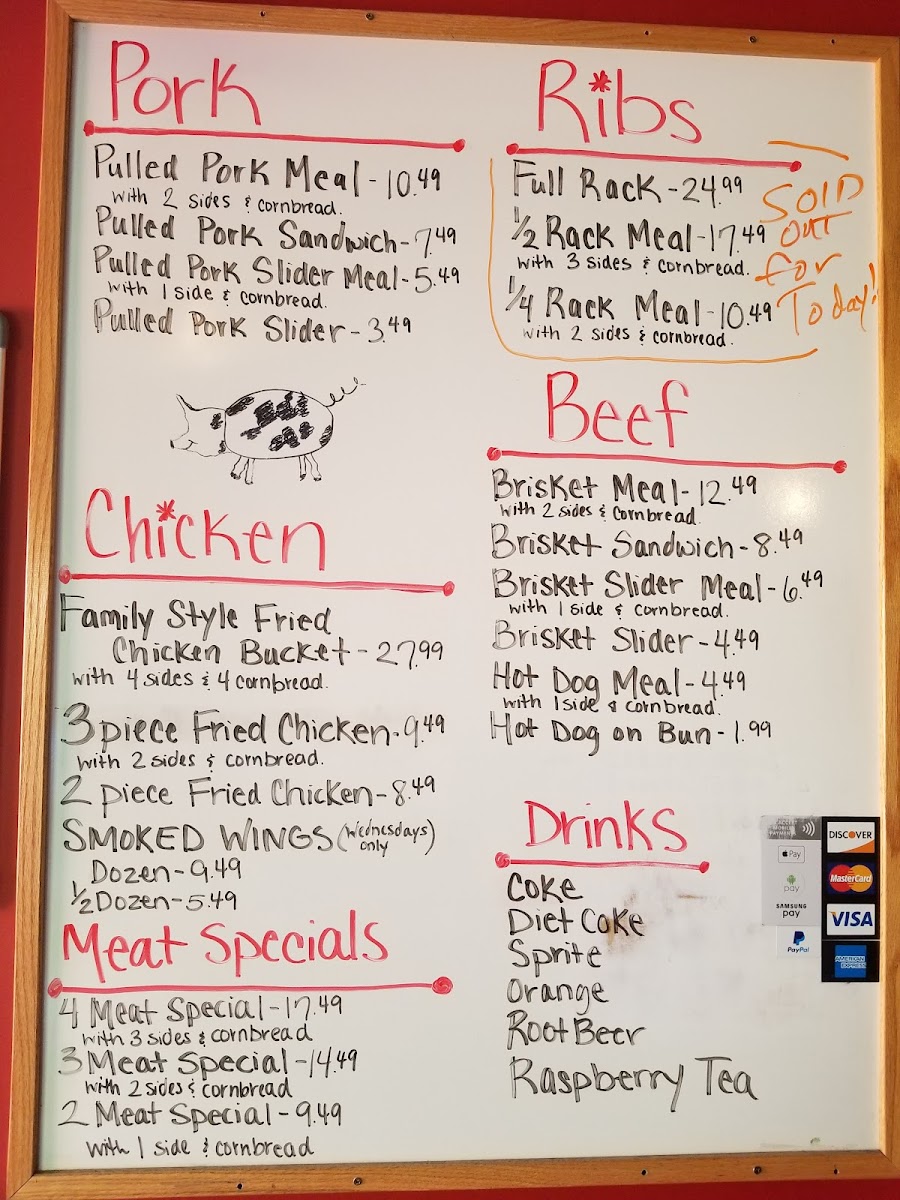 Pork
Pulled Pork Meal - 10.49
with 2 sides & cornbread.
Pulled Pork Sandwich - 7.49
Pulled Pork Slider Meal - 5.49
with 1 side & cornbread.
Pulled Pork Slider - 3.49
Chicken
Family Style Fried
Chicken Bucket - 27.99
with 4 sides & 4 cornbread.
3 piece Fried Chicken - 9.49
with 2 sides & cornbread.
2 piece Fried Chicken - 8.49
SMOKED WINGS (Wednesdays only)
Dozen - 9.49
1/2 Dozen - 5.49
Meat Specials
4 Meat Special - 17.49
with 3 sides & cornbread
3 Meat Special - 14.49
with 2 sides & cornbread
2 Meat Special - 9.49
with 1 side & cornbread
Ribs
Full Rack - 24.99
1/2 Rack Meal - 17.49
with 3 sides & cornbread.
1/4 Rack Meal - 10.49
with 2 sides & cornbread.
SOLD
OUT
for
Today!
Beef
Brisket Meal - 12.49
with 2 sides & cornbread.
Brisket Sandwich - 8.49
Brisket Slider Meal - 6.49
with 1 side & cornbread.
Brisket Slider - 4.49
Hot Dog Meal - 4.49
with 1 side & cornbread.
Hot Dog on Bun - 1.99
Drinks
Coke
Diet Coke
Sprite
Orange
Root Beer
Raspberry Tea
Pay
pay
SAMSUNG
pay
PayPal
DISCOVER
MasterCard
VISA
AMERICAN
EXPRESS